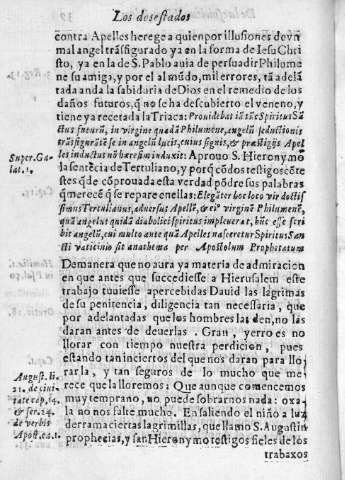 Los dosestados
contra Apelles herege a quien por illusiones de vn
mal angel trãsfigurado ya en la forma de Iesu Chri
sto, ya en la de S. Pablo auia de persuadir Philome
ne su amiga, y por el al mũdo, mil errores, tã adelã
tada anda la sabiduria de Dios en el remedio de los
daños futuros, q̃ no se ha descubierto el veneno, y
tiene ya recetada la Triaca: Prouidebat iã tũc Spiritus Sã
ctus futurũ, in virgine quadã Philumene, angelũ seductionis
trãsfiguratũ se in angelũ lucis, cuius signis, & præstigijs Apel
les inductus nouã hæresim induxit: Aprouo S. Hieronymo
Super. Ga-
lat. 1.
la sentẽcia de Tertuliano, y porq̃ cõ dos testigos cõte
stes q̃ de cõprouada esta verdad põdre sus palabras
q̃ merecẽ q̃ se repare en ellas: Elegãter hoc loco vir docti
simus Tertullianus, aduersus Apellẽ, & eiꝰ virginẽ Philumenẽ,
quã angelus quidã diabolici spiritus impleuerat, hũc esse scri
bit angelũ, cui multo ante quã Apelles nasceretur Spiritus San
cti vaticinio sit anathema per Apostolum Prophetatum
Demanera que no aura ya materia de admiracion
en que antes que succediesse a Hierusalem este
trabajo tuuiesse apercebidas Dauid las lagrimas
de su penitencia, diligencia tan necessaria, que
por adelantadas que los hombres las den, no las
daran antes de deuerlas. Gran, yerro es no
llorar con tiempo nuestra perdicion, pues
estando tan inciertos del que nos daran para llo
rarla, y tan seguros de lo mucho que me
rece que la lloremos: Que aunque comencemos
muy temprano, no puede sobrarnos nada: oxa
la no nos salte mucho. En saliendo el niño a luz
derrama ciertas lagrimillas, que llamo S. Augustin
prophecias, y san Hieronymo testigos fieles de los
August. li.
21. de ciui
tate cap. 14.
& ser. 24.
de verbis
Apost. ca. 1.
trabaxos